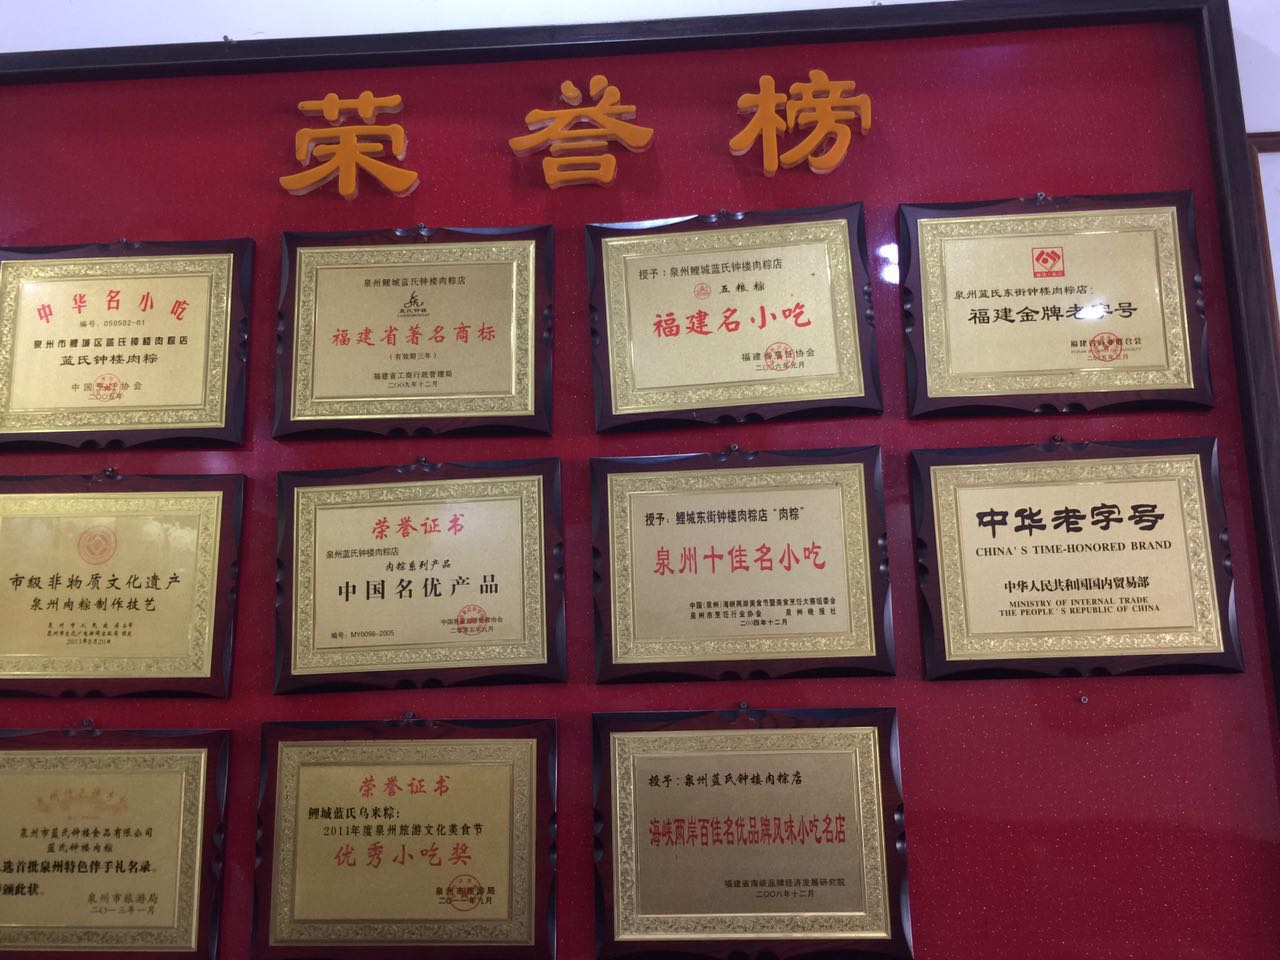 荣誉榜
中华名小吃
编号：050502-01
泉州市鲤城区蓝氏钟楼肉粽店
蓝氏钟楼肉粽
中国烹饪协会
二〇〇五年
泉州鲤城蓝氏钟楼肉粽店
蓝氏钟楼
福建省著名商标
(有效期三年)
福建省工商行政管理局
二〇〇九年十二月
授予：泉州鲤城蓝氏钟楼肉粽店
五粮粽
福建名小吃
福建省烹饪协会
二〇〇六年元月
泉州蓝氏东街钟楼肉粽店：
福建金牌老字号
福建省商业联合会
市级非物质文化遗产
泉州肉粽制作技艺
泉州市人民政府公布
泉州市文化广电新闻出版局 颁发
2013年8月20日
荣誉证书
泉州蓝氏钟楼肉粽店
肉粽系列产品
中国名优产品
编号：MY0098-2005
二零零五年九月
授予：鲤城东街钟楼肉粽店“肉粽”
泉州十佳名小吃
中国（泉州）海峡两岸美食节暨美食烹饪大赛组委会
泉州市烹饪行业协会 泉州晚报社
二〇〇四年十二月
中华老字号
CHINA'S TIME-HONORED BRAND
中华人民共和国国内贸易部
MINISTRY OF INTERNAL TRADE
THE PEOPLE'S REPUBLIC OF CHINA
泉州市蓝氏钟楼食品有限公司
蓝氏钟楼肉粽
选首批泉州特色伴手礼名录。
颁此状。
泉州市旅游局
二〇一三年一月
荣誉证书
鲤城蓝氏乌米粽：
2011年度泉州旅游文化美食节
优秀小吃奖
泉州市旅游局
二〇一一年九月
授予：泉州蓝氏钟楼肉粽店
海峡两岸百佳名优品牌风味小吃名店
福建省海峡品牌经济发展研究院
二〇〇八年十二月